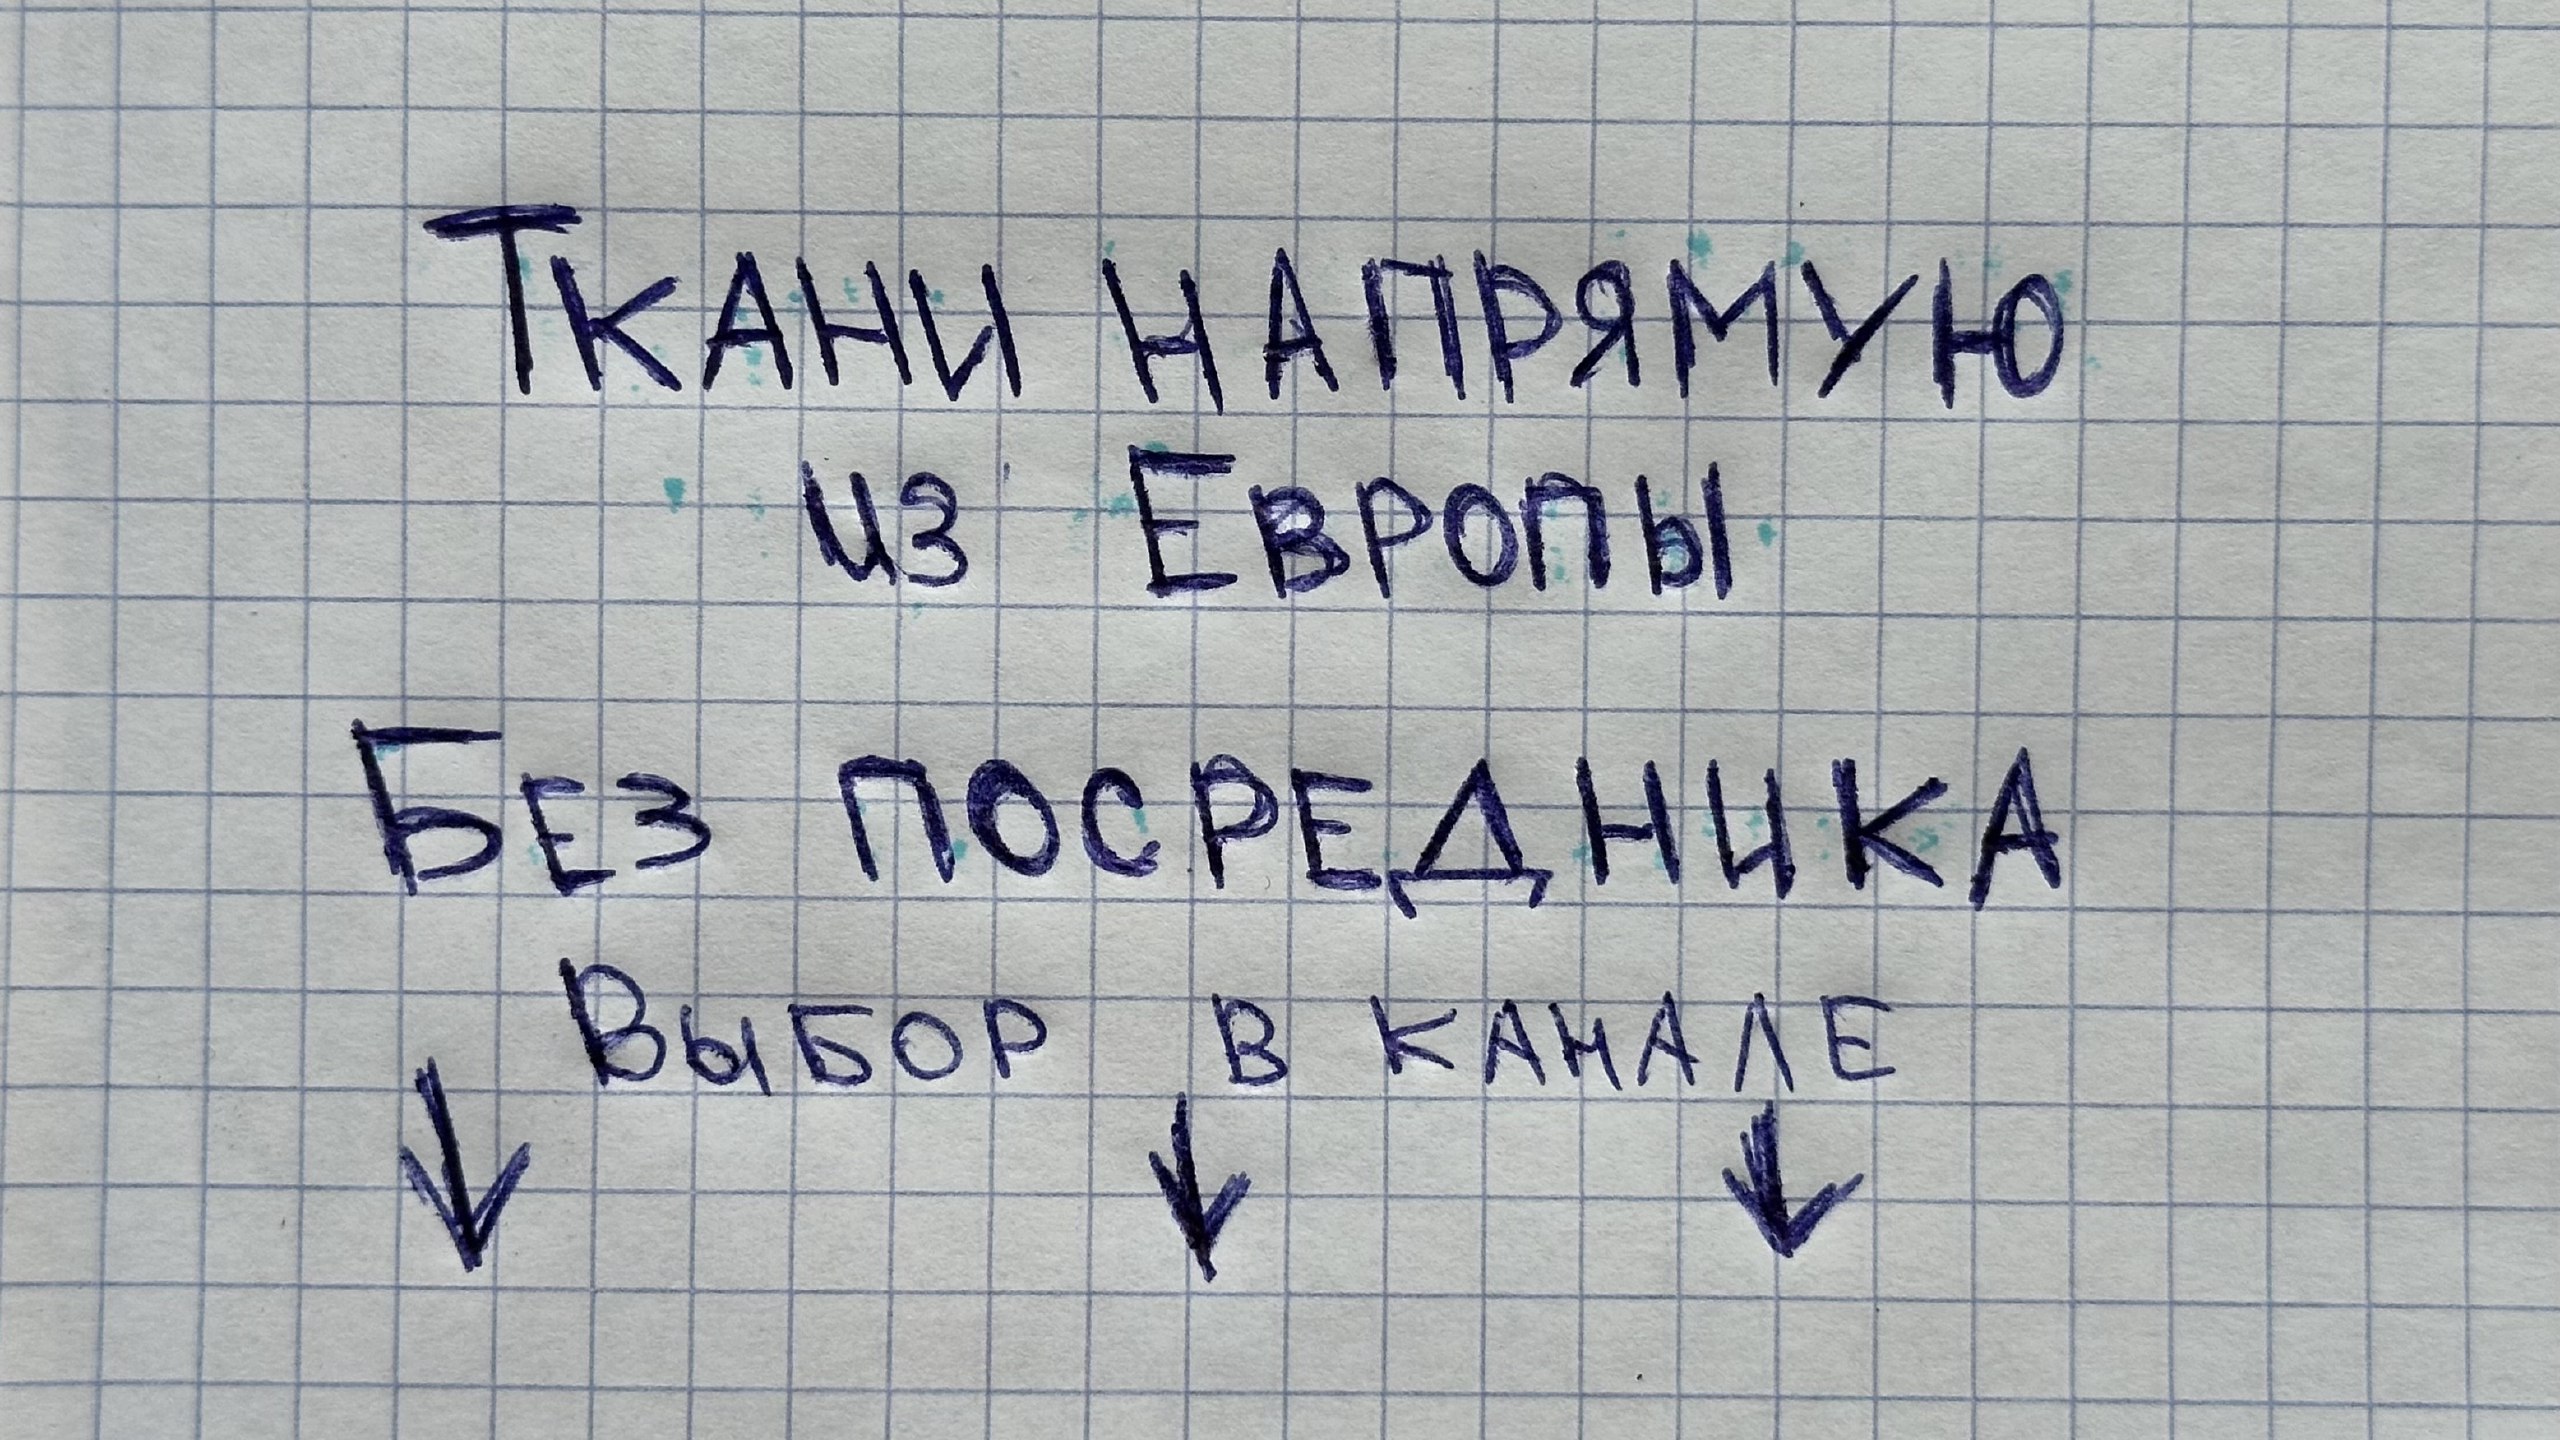 Ткани напрямую
из Европы
Без посредника
Выбор в канале